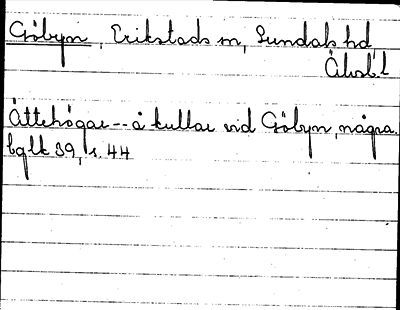 Göbyn, Erikstads sn, Sundals hd
Älvsb. l
Ättehögar -- å kullar vid Göbyn, några.
bglk 39, s. 44